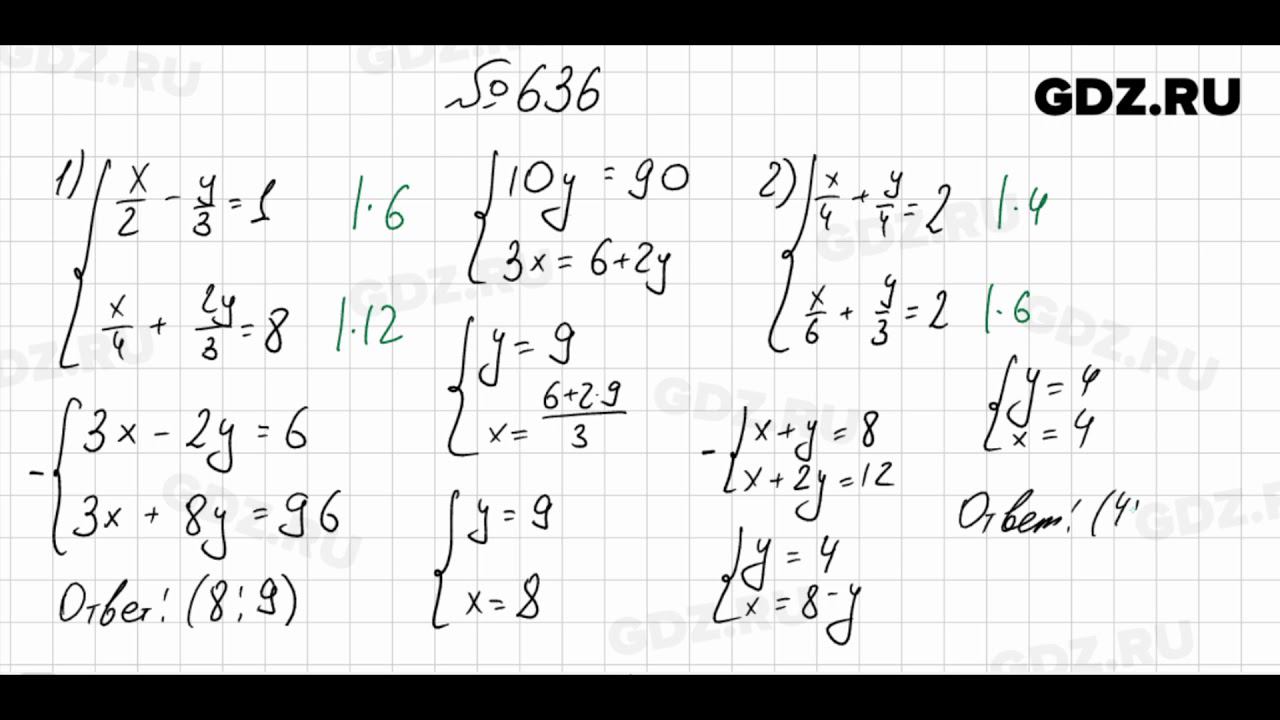 №636
GDZ.RU
1) { x/2 - y/3 = 1 |·6
x/4 + 2y/3 = 8 |·12
- { 3x - 2y = 6
3x + 8y = 96
Ответ: (8; 9)
{ 10y = 90
3x = 6+2y
{ y = 9
x = (6+2·9)/3
{ y = 9
x = 8
2) { x/4 + y/4 = 2 |·4
x/6 + y/3 = 2 |·6
- { x + y = 8
x + 2y = 12
{ y = 4
x = 8 - y
{ y = 4
x = 4
Ответ: (4;